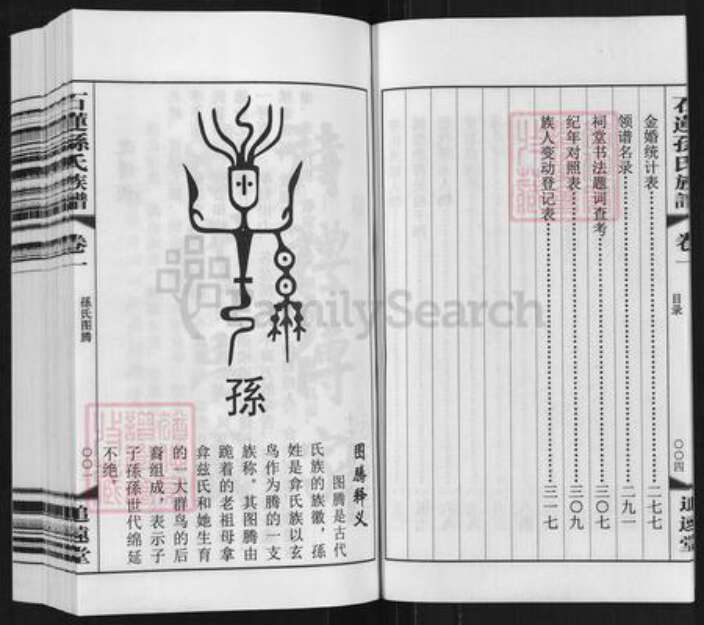 石蓮孫氏族譜
卷一
目录
〇〇四
追遠堂
金婚统计表 二七七
领谱名录 二九一
祠堂书法题词查考 三〇七
纪年对照表 三〇九
族人变动登记表 三一七
孫
图腾释义
图腾是古代
氏族的族徽，孫
姓是弇氏族以玄
鸟作为腾的一支
族称。其图腾由
跪着的老祖母拿
弇兹氏和她生育
的一大群鸟的后
裔组成，表示子
子孫孫世代绵延
不绝。
石蓮孫氏族譜
卷一
孫氏图腾
追遠堂
FamilySearch